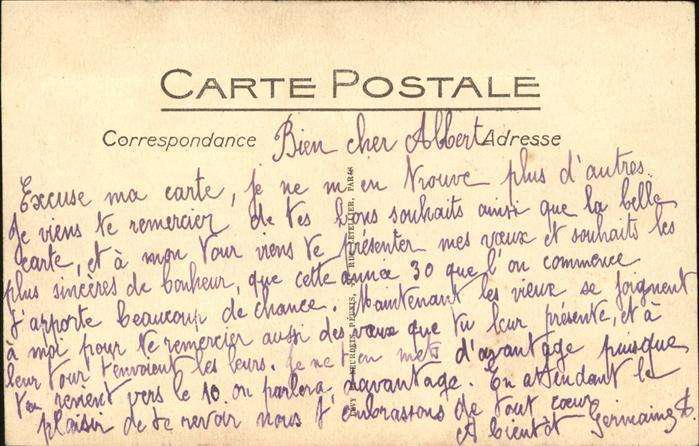 CARTE POSTALE
Correspondance
Adresse
Bien cher Albert
Excuse ma carte, je ne m'en trouve plus d'autres.
Je viens te remercier de tes bons souhaits ainsi que la belle
carte, et à mon tour viens te présenter mes vœux et souhaits les
plus sincères de bonheur, que cette année 30 que l'on commence
t'apporte beaucoup de chance. Maintenant les vieux se joignent
à moi pour te remercier aussi des vœux que tu leur présente, et à
leur tour t'envoient les leurs. Je ne t'en mets d'avantage puisque
vers le 10. on parlera davantage. En attendant le
plaisir de te revoir nous t'embrassons de tout cœur
A bientôt Germaine